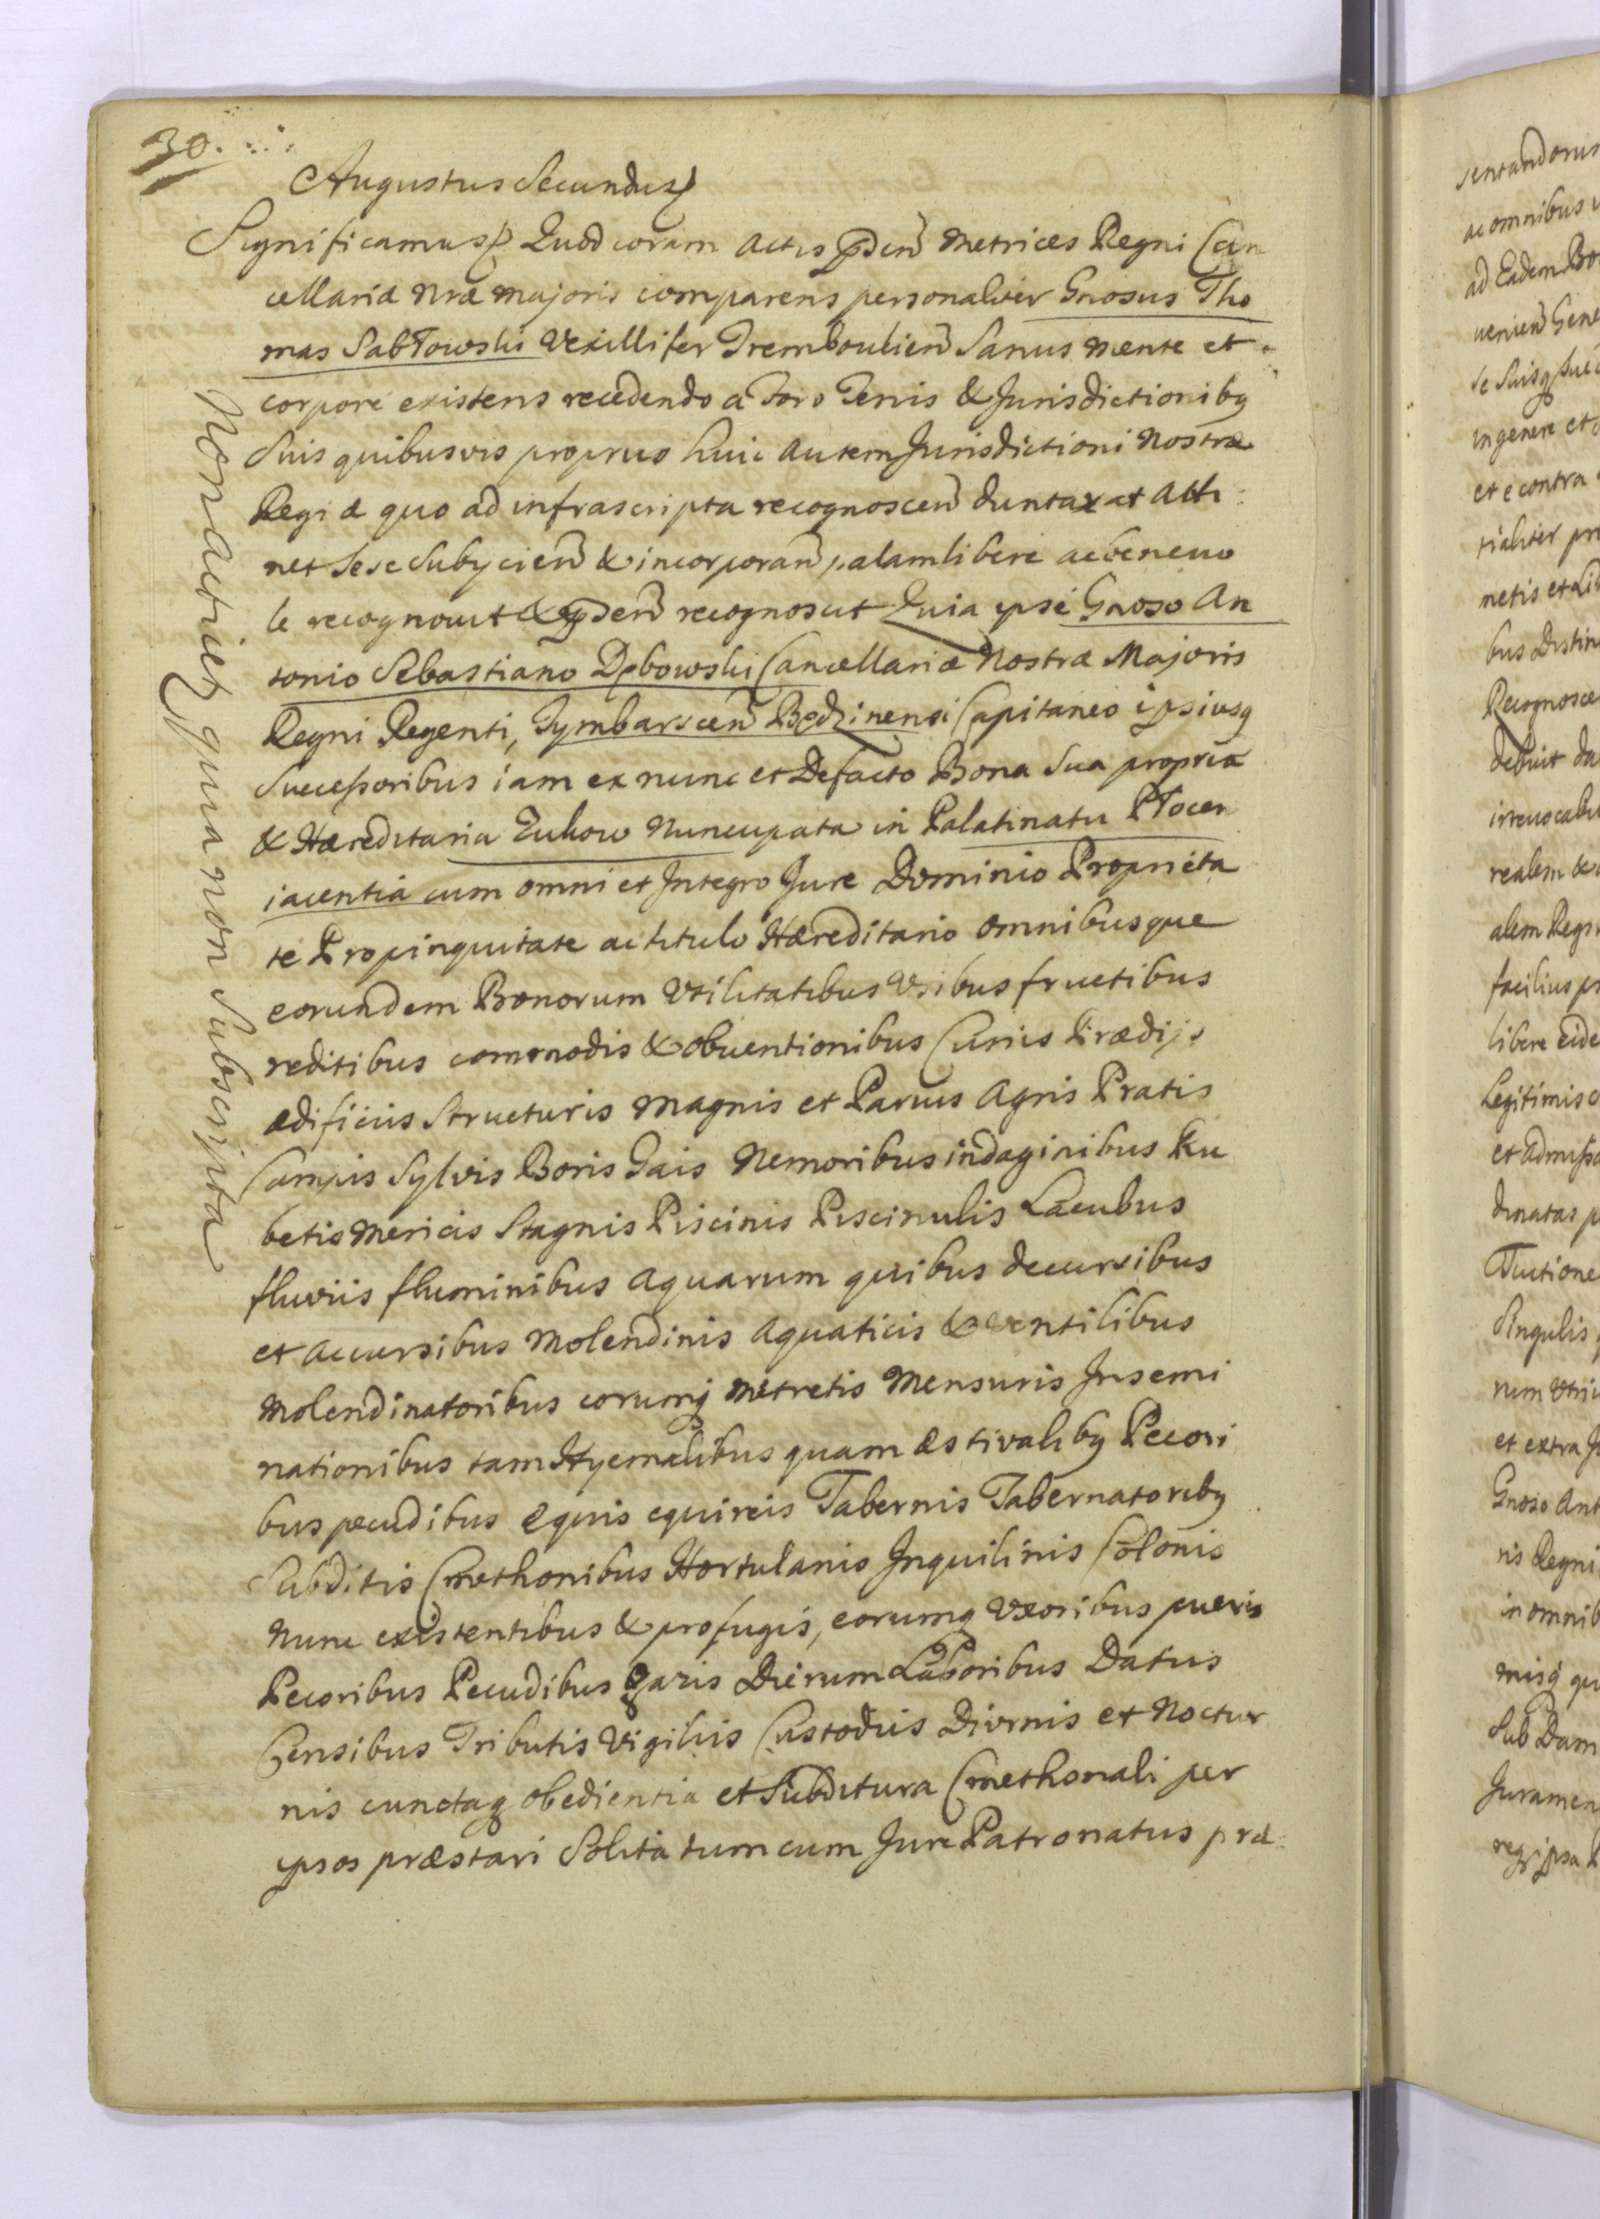 30.
Augustus Secundus
Significamus Quod coram Actis pnden̄ Metrices Regni Can
cellariæ Nræ Majoris comparens personaliter Gnosus Tho
mas Sabłowski Vexillifer Tremboulien̄ Sanus Mente et
corpore existens recedendo a Foro Terris & Jurisdictionibq
Suis quibusvis proprus huic Autem Jurisdictioni Nostræ
Regiæ quo ad infrascripta recognoscen̄ duntaxat Atti
net Sese Subycien̄ & incorporan̄ palam libere ac benevo
le recognovit & pnden̄ recognoscit Quia ipse Gnoso An
tonio Sebastiano Dębowski Cancellariæ Nostræ Majoris
Regni Regenti, Tymbarscen̄ Będzinensi Capitaneo ipsiusq
Successoribus iam ex nunc et Defacto Bona Sua propria
& Hæreditaria Łukow Nuncupata in Palatinatu Płocen
iacentia cum omni et Integro Jure Dominio Proprieta
te Propinquitate ac titulo Hæreditario Omnibusque
eorundem Bonorum Vtilitatibus Vsibus fructibus
reditibus commodis & obventionibus Curiis Prædijs
Ædificiis Structuris Magnis et Parvis Agris Pratis
Campis Sylvis Boris Gais Nemoribus indaginibus Ru
betis Mericis Stagnis Piscinis Piscinulis Lacubus
fluviis fluminibus Aquarum quibus decursibus
et accursibus Molendinis Aquaticis & Ventilibus
Molendinatoribus eorumq Metretis Mensuris Insemi
nationibus tam Hyemalibus quam æstivalibq Pecori
bus pecudibus Equis equireis Tabernis Tabernatoribq
Subditis Cmethonibus Hortulanis Inquilinis Colonis
Nunc existentibus & profugis, eorumq Vxoribus pueris
Pecoribus Pecudibus Gazis Dierum Laboribus Datiis
Censibus Tributis Vigiliis Custodiis Diurnis et Noctur
nis cunctaq obedientia et Subditura Cmethonali per
ipsos præstari Solita tum cum Jure Patronatus præ
Non actice quia non Subscripta
sentandorum
ac omnibus
ad Eadem Bo
venien̄ Gene
se Suisq Suc
in genere et
et e contra
tialiter pr
metis et Li
bus Distin
Recognosce
debuit da
irrevocabi
realem &
alem Regn
facilius
libere eide
Legitimis
et admiss
dinatas
Tuitione
Singulis
num Vtri
et extra J
Gnoso Ant
ris Regni
in omnib
misq qu
Sub Dam
Juramen